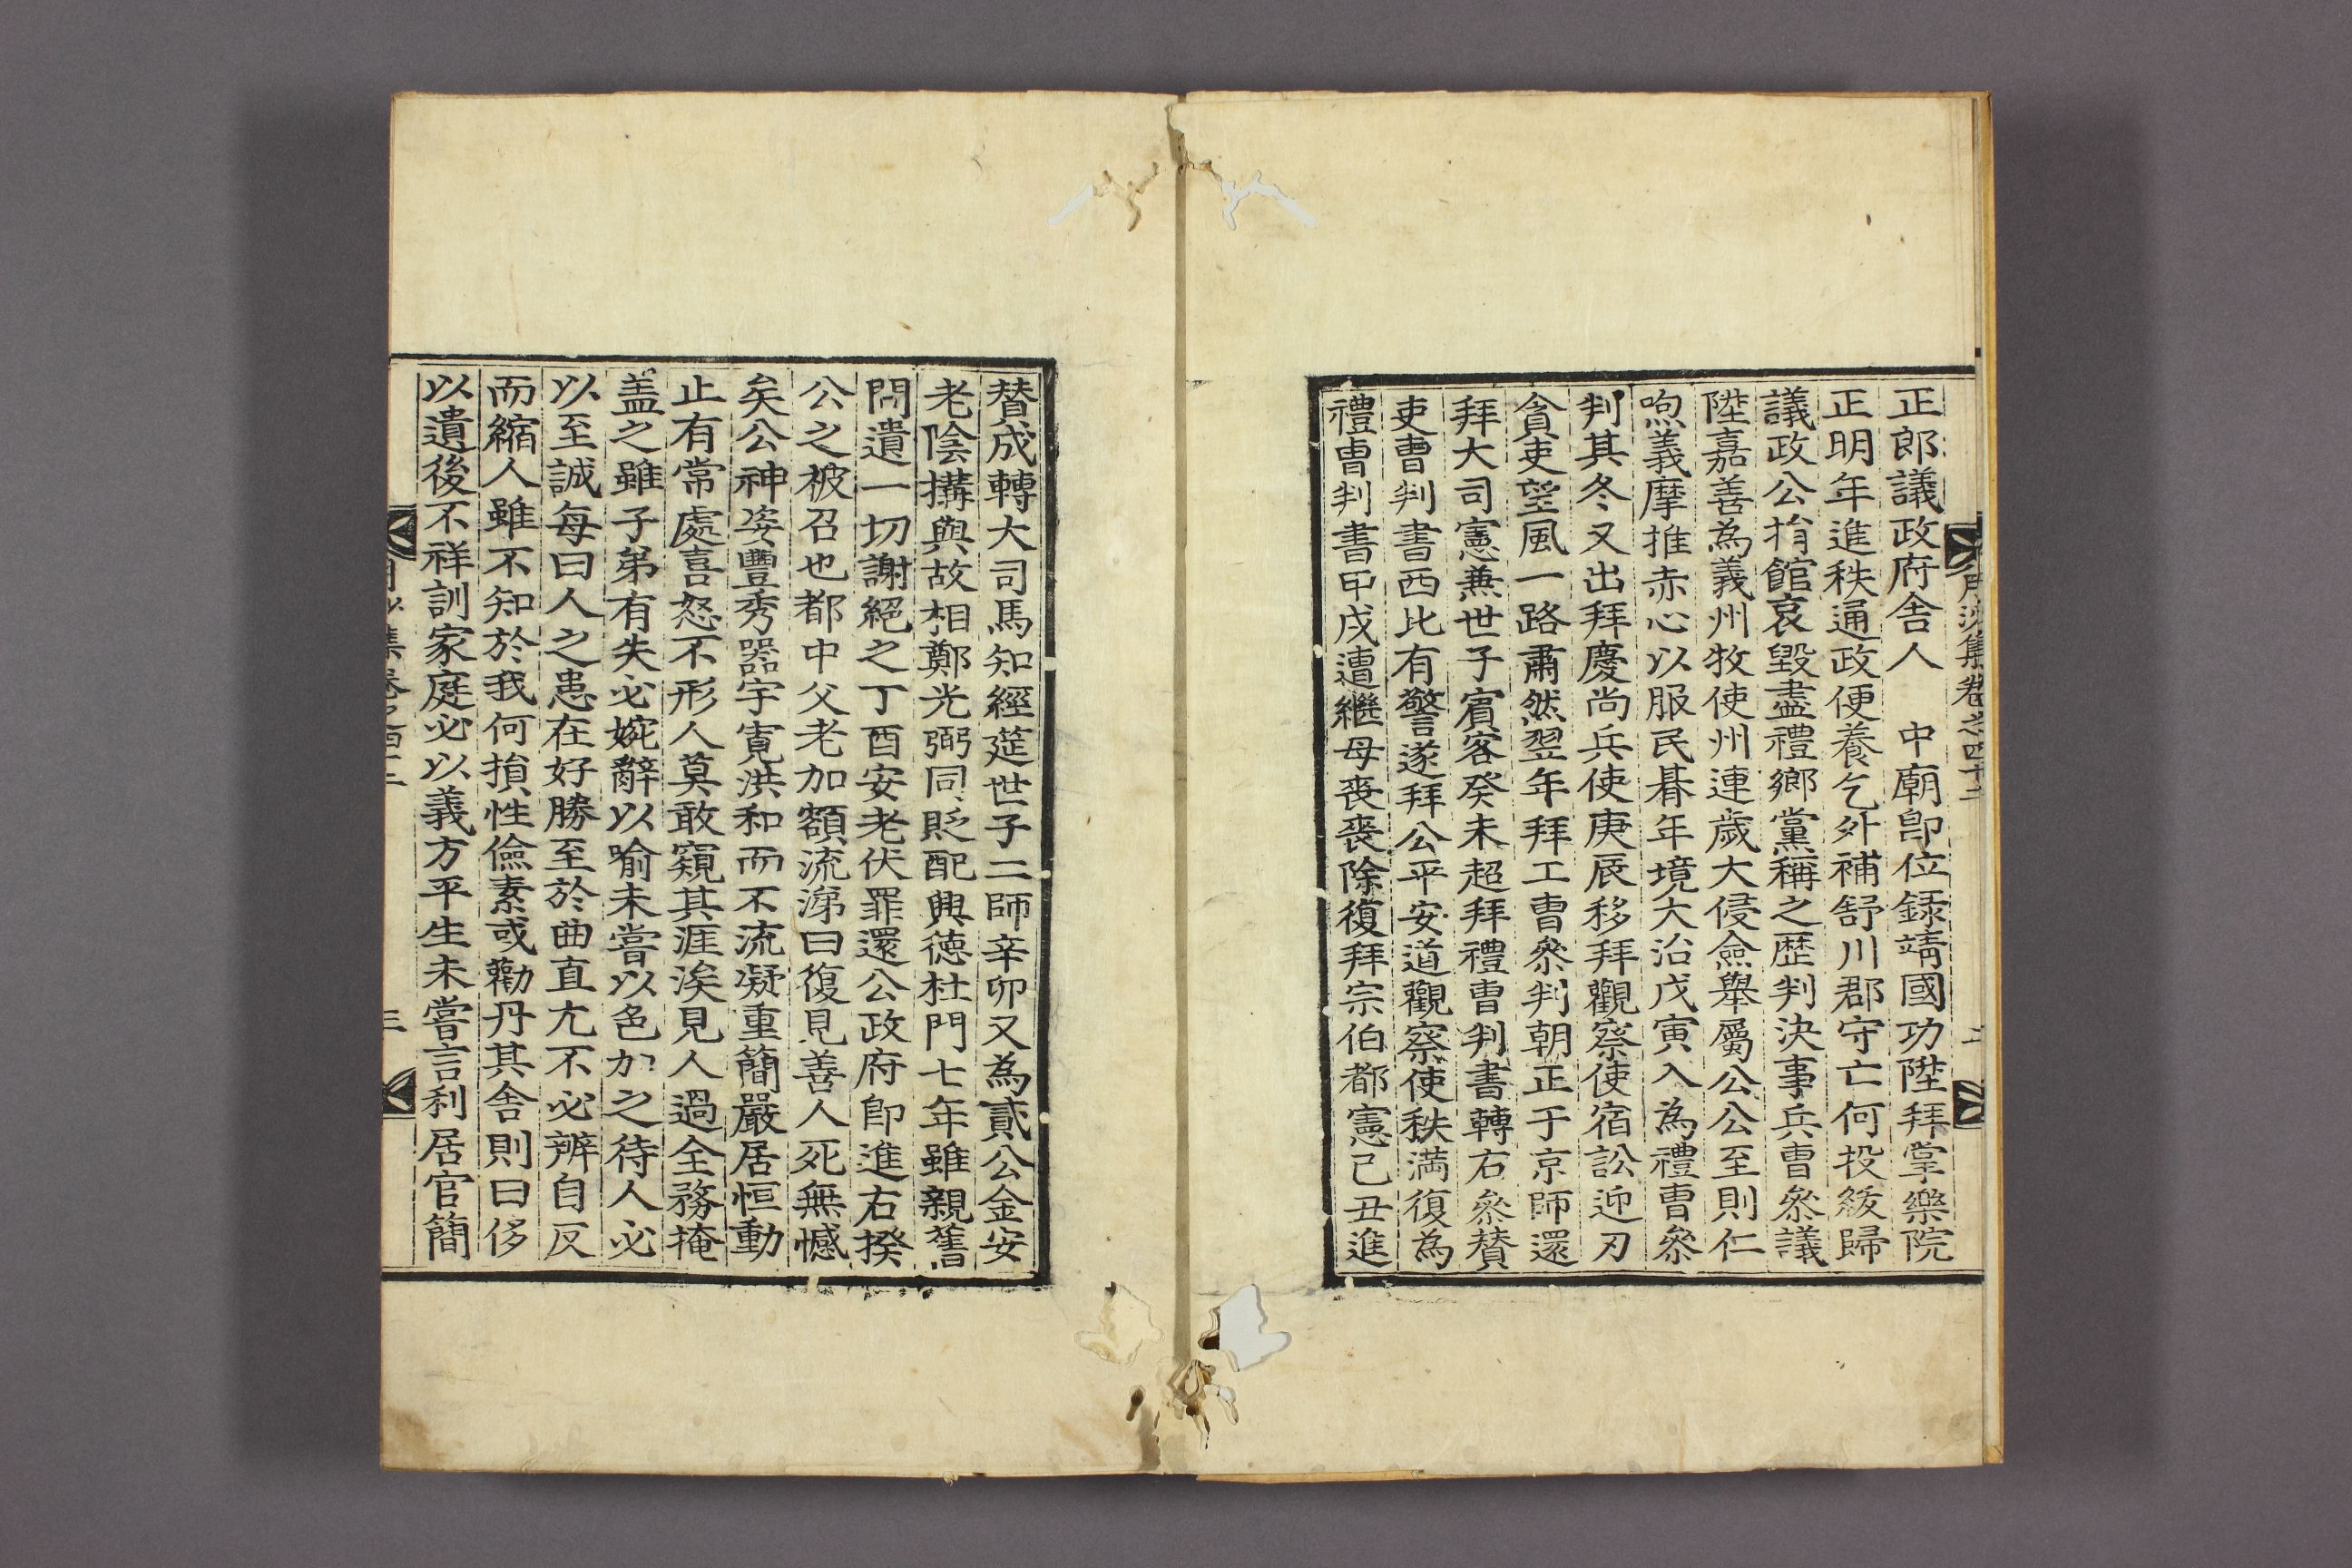 月沙集卷之四十二
正郎議政府舍人　中廟卽位録靖國功陞拜掌樂院
正明年進秩通政便養乞外補舒川郡守亡何投綬歸
議政公捐館哀毀盡禮鄉黨稱之歷判決事兵曹叅議
陞嘉善為義州牧使州連歲大侵僉舉屬公公至則仁
呴義摩推赤心以服民朞年境大治戊寅入為禮曹叅
判其冬又出拜慶尚兵使庚辰移拜觀察使宿訟迎刃
貪吏望風一路肅然翌年拜工曹叅判朝正于京師還
拜大司憲兼世子賓客癸未超拜禮曹判書轉右叅賛
吏曹判書西北有警遂拜公平安道觀察使秩滿復為
禮曹判書甲戌遭繼母喪喪除復拜宗伯都憲己丑進
賛成轉大司馬知經筵世子二師辛卯又為貳公金安
老陰搆與故相鄭光弼同貶配興德杜門七年雖親舊
問遺一切謝絕之丁酉安老伏罪還公政府卽進右揆
公之被召也都中父老加額流涕曰復見善人死無憾
矣公神姿豐秀器宇寬洪和而不流凝重簡嚴居恒動
止有常處喜怒不形人莫敢窺其涯涘見人過全務掩
盖之雖子弟有失必婉辭以喻未嘗以色加之待人必
以至誠每曰人之患在好勝至於曲直尤不必辨自反
而縮人雖不知於我何損性儉素或勸丹其舍則曰侈
以遺後不祥訓家庭必以義方平生未嘗言利居官簡
三